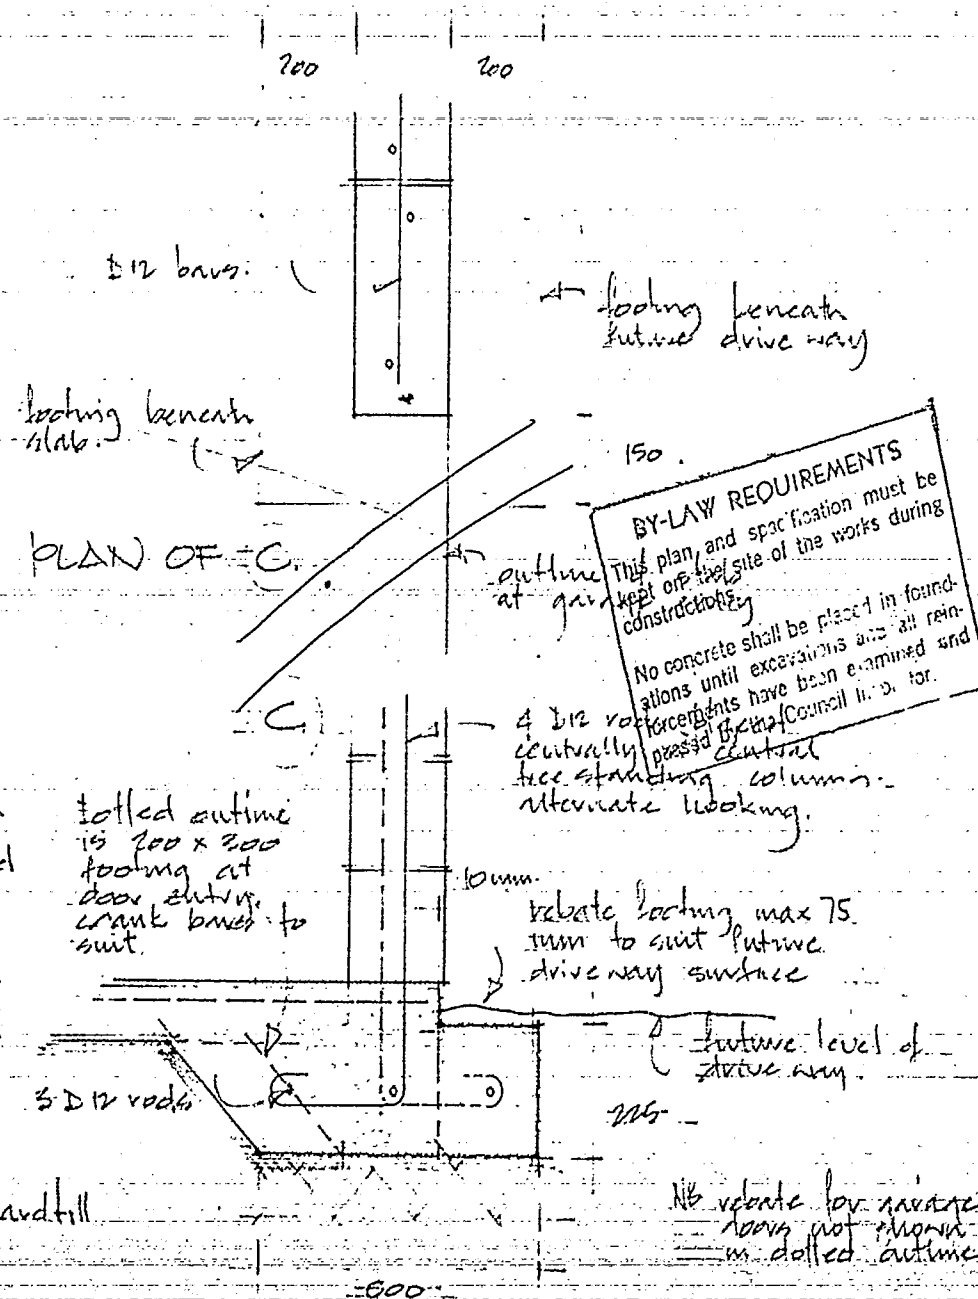 200
200
D12 bars.
footing beneath
future drive way
footing beneath
slab.
150.
PLAN OF C.
outline
at
BY-LAW REQUIREMENTS
This plan and specification must be
kept on the site of the works during
constructions.
No concrete shall be placed in found-
ations until excavations and all rein-
forcements have been examined and
passed by the Council
C
4 D12 rods
centrally central
free standing columns.
alternate hooking.
Dotted outline
is 200 x 300
footing at
door entry.
crank bars to
suit.
10mm.
rebate footing max 75
mm to suit future
driveway surface
future level of
drive way.
3 D12 rods
225
NB rebate for garage
doors not shown
in dotted outline
600